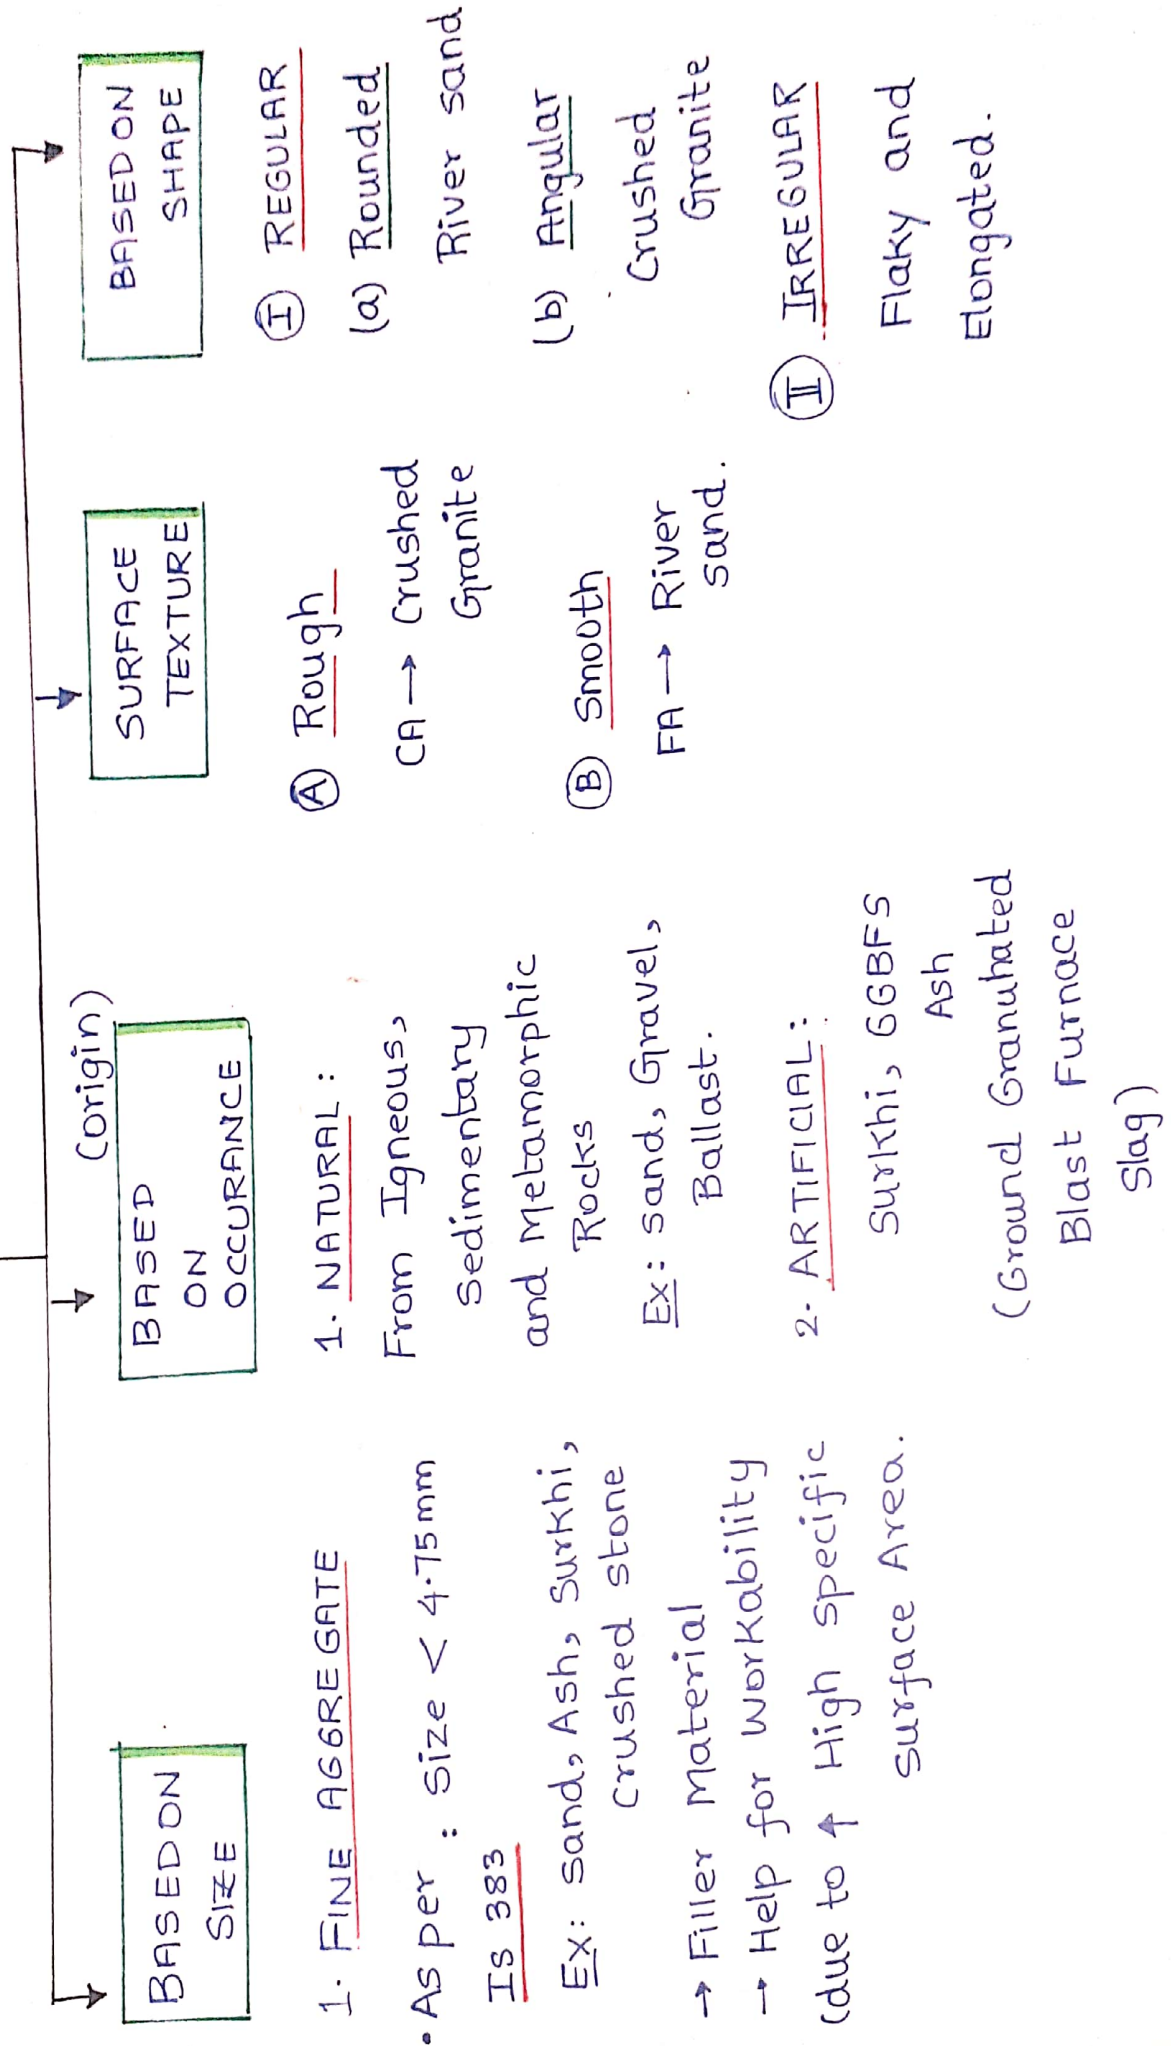 BASED ON
SIZE
1. FINE AGGREGATE
• As per : Size < 4.75mm
IS 383
Ex: Sand, Ash, Surkhi,
Crushed stone
→ Filler Material
→ Help for workability
(due to ↑ High specific
surface Area.
(origin)
BASED
ON
OCCURANCE
1. NATURAL :
From Igneous,
Sedimentary
and Metamorphic
Rocks
Ex: Sand, Gravel,
Ballast.
2. ARTIFICIAL :
Surkhi, GGBFS
Ash
(Ground Granuhated
Blast Furnace
Slag)
SURFACE
TEXTURE
Ⓐ Rough
CA → Crushed
Granite
Ⓑ Smooth
FA → River
sand.
BASED ON
SHAPE
Ⓘ REGULAR
(a) Rounded
River sand
(b) Angular
Crushed
Granite
II IRREGULAR
Flaky and
Elongated.